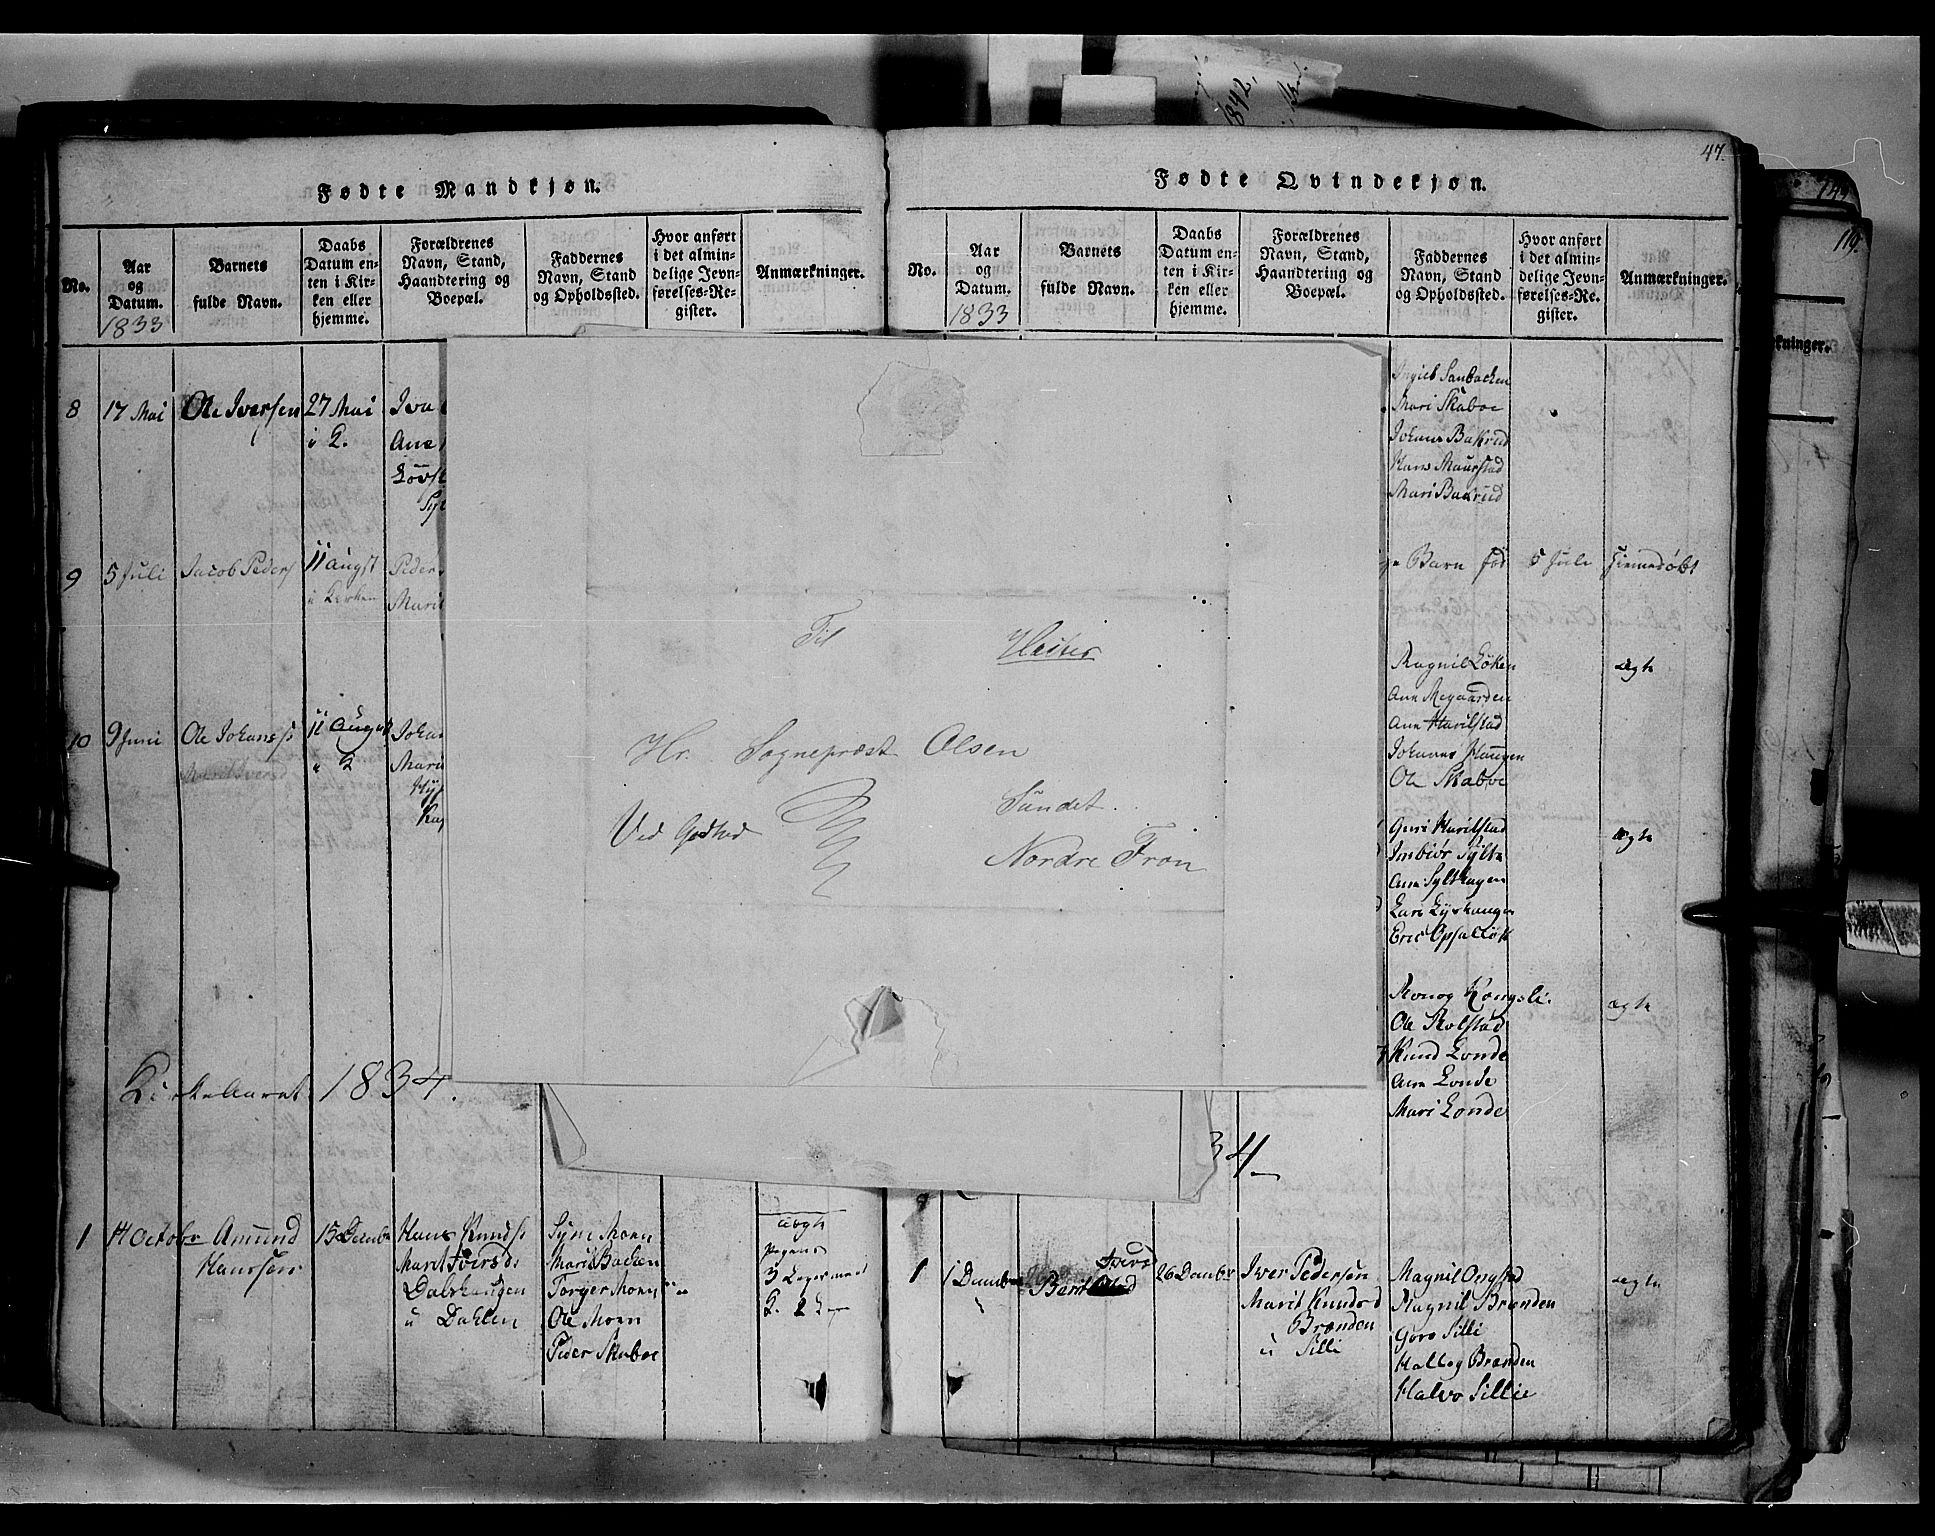 1842.
47.
149
119.
Fødte Mandkjøn.
No.
Aar
og
Datum.
1833
Barnets
fulde Navn.
Daabs
Datum en-
ten i Kir-
ken eller
hjemme.
Forældrenes
Navn, Stand,
Haandtering og
Boepæl.
Faddernes
Navn, Stand
og Opholdssted.
Hvor anført
i det almin-
delige Jevn-
førelses-Re-
gister.
Anmærkninger.
8 17 Mai Ole Iversen 27 Mai
i K.
Ane
9 5 Juli Jacob Peders 11 Augst Peder
i Kirken Marit
10 9 Juni Ole Johans 11 August Johan
Mari
Kirkeaaret 1834.
1 14 Octobr Amund 15 Decmbr Hans Knuds
Hanssen Marit Iversd.
Dalshaugen
u Dahlen
Syne Moen
Marit Backen
Torger Moen
Ole Moen
Peder Skaboe
uægte
3 Legermaal
Fødte Qvindekjøn.
No.
Aar
og
Datum.
1833
Barnets
fulde Navn.
Daabs
Datum en-
ten i Kir-
ken eller
hjemme.
Forældrenes
Navn, Stand,
Haandtering og
Boepæl.
Faddernes
Navn, Stand
og Opholdssted.
Hvor anført
i det almin-
delige Jevn-
førelses-Re-
gister.
Anmærkninger.
kninger.
Sanbacken
Mari Skaboe
Johans Bakrud
Hans Maurstad
Mari Bakrud
Barn fød 5 Juli Hiemedøbt
Ragnil Løken ægte
Ane Megaarden
Ane Harilstad
Johannes Haugen
Ole Skaboe
Guri Harilstad ægte
Imbiør Sylte
Ane Sylthagen
Lars Lyshaugen
Ronog Kongsli. ægte
Ole Rolstad
Knud Londe
Ane Londe
Mari Londe
34
1 1 Decmbr Berit Iversd 26 Decmbr Iver Pedersen
Marit Knudsd
Brænden
u Silli
Magnil Ongstad ægte
Magnil Brænden
Goro Silli
Halleg Brænden
Halvo Sillie
Til
Heiter
Hr. Sogneprest Olsen
Sundet.
Ved Godhed
Nordre Fron